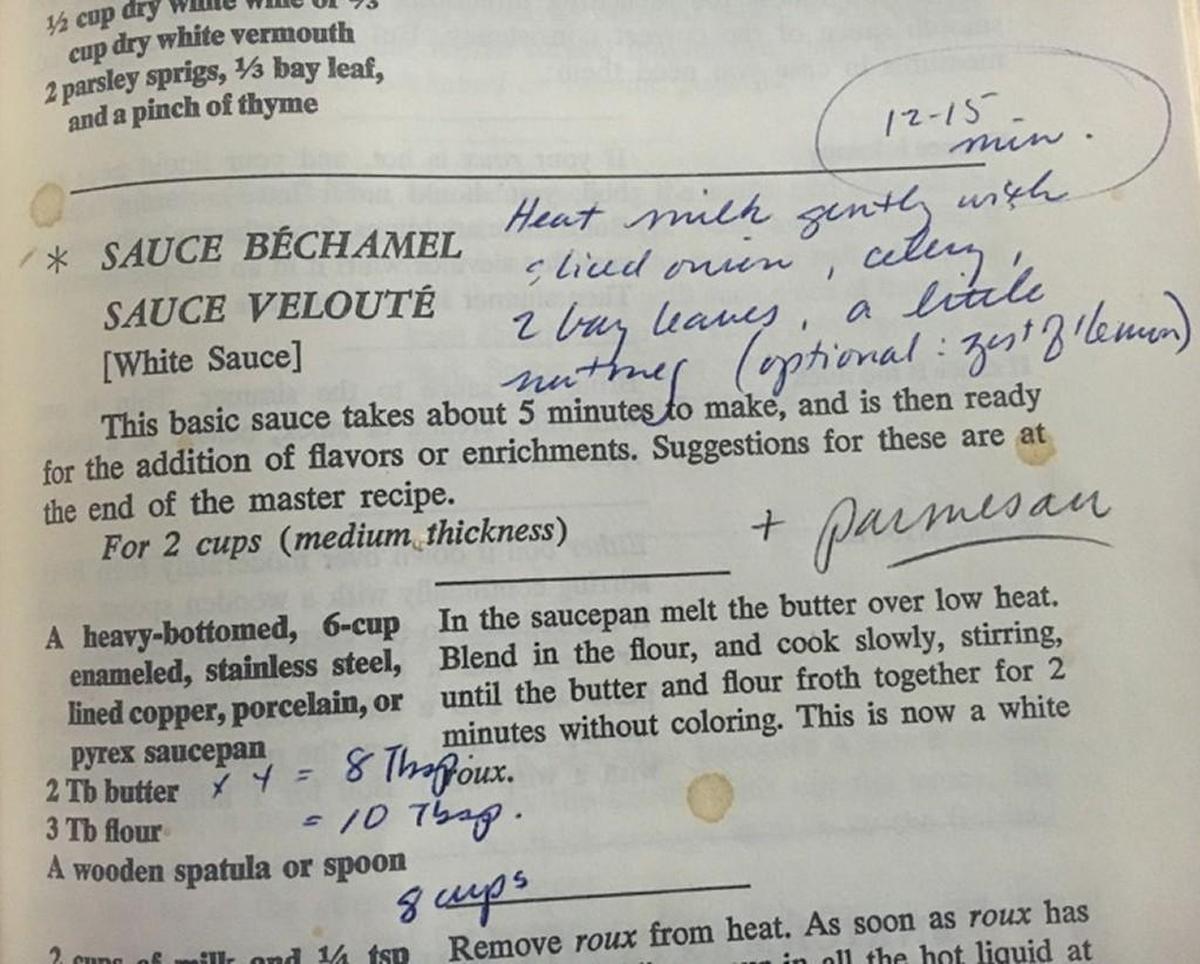 ½ cup dry white wine or ⅔
cup dry white vermouth
2 parsley sprigs, ⅓ bay leaf,
and a pinch of thyme
12-15
min.
* SAUCE BÉCHAMEL
SAUCE VELOUTÉ
[White Sauce]
Heat milk gently with
sliced onion, celery,
2 bay leaves, a little
nutmeg (optional: zest of 1 lemon)
This basic sauce takes about 5 minutes to make, and is then ready
for the addition of flavors or enrichments. Suggestions for these are at
the end of the master recipe.
For 2 cups (medium thickness)
+ parmesan
A heavy-bottomed, 6-cup
enameled, stainless steel,
lined copper, porcelain, or
pyrex saucepan
2 Tb butter x 4 = 8 Tbsp
3 Tb flour = 10 Tbsp.
A wooden spatula or spoon
8 cups
In the saucepan melt the butter over low heat.
Blend in the flour, and cook slowly, stirring,
until the butter and flour froth together for 2
minutes without coloring. This is now a white
roux.
2 cups of milk and ¼ tsp
Remove roux from heat. As soon as roux has
in all the hot liquid at